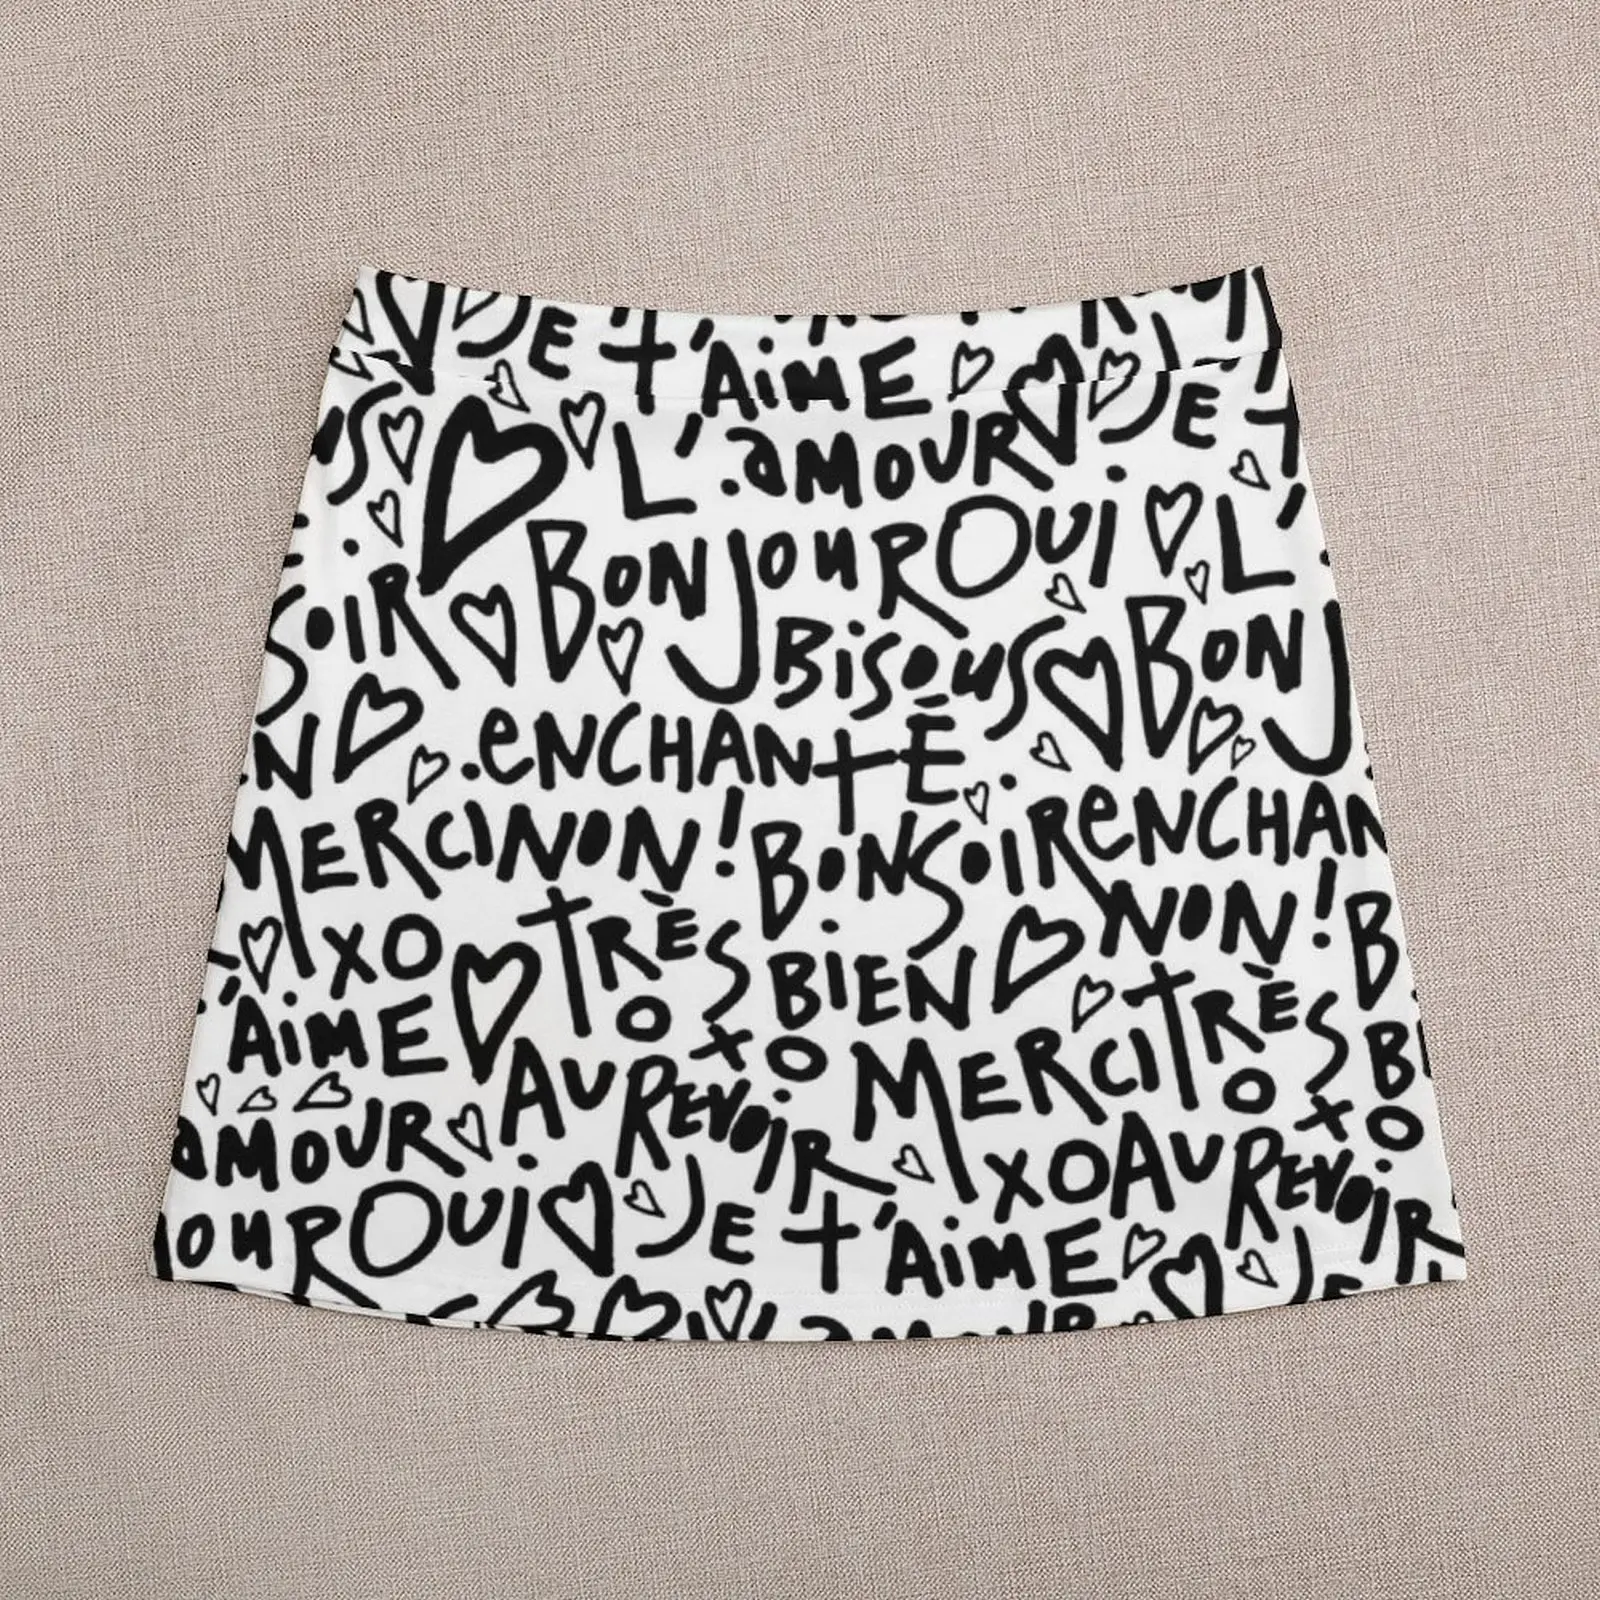 JE t'AiME
L'amour JE t
BONJOUR OUi L'
SOIR BiSOUS BONJ
N eNCHANtÉ
MERCI NON! BONSOIR eNCHAN
XO TRÈS BIEN NON! B
t'AiME O XO MERCI TRÈS B
AU REVOIR O XO
amour XO AU REVOIR
JOUR OUi JE t'AiME JE
amour